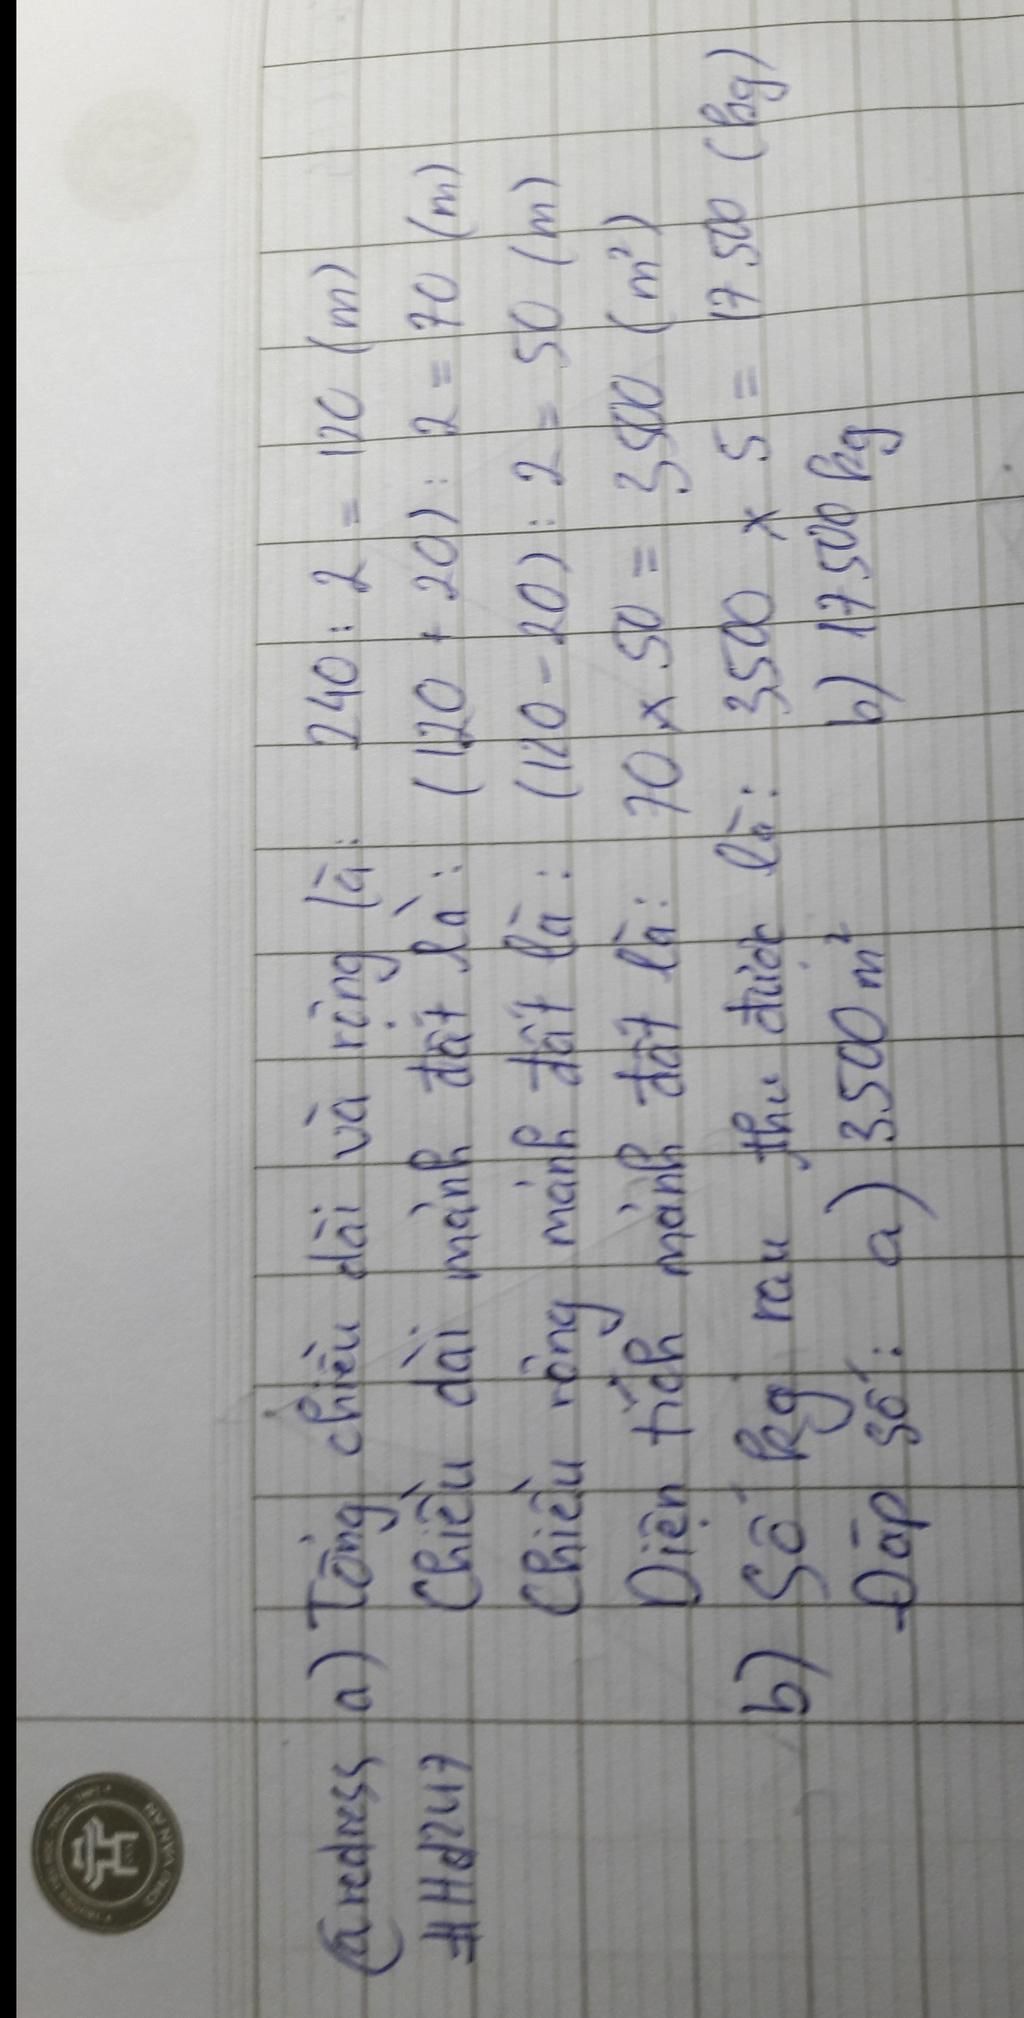 @redness a) Tổng chiều dài và rộng là: 240 : 2 = 120 (m)
Chiều dài mảnh đất là: (120 + 20) : 2 = 70 (m)
Chiều rộng mảnh đất là: (120 - 20) : 2 = 50 (m)
Diện tích mảnh đất là: 70 x 50 = 3500 (m²)
b) Số kg rau thu được là: 3500 x 5 = 17 500 (kg)
Đáp số: a) 3500 m² b) 17 500 kg